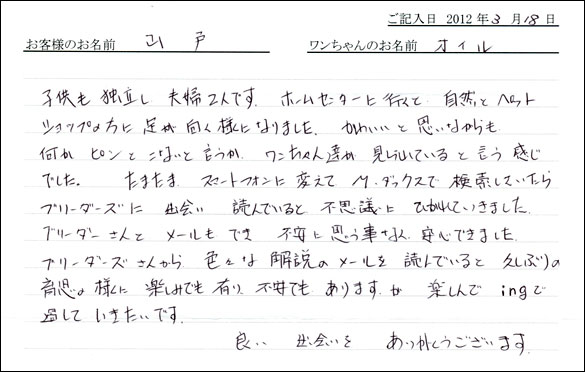 ご記入日 2012年3月18日
お客様のお名前 山戸 ワンちゃんのお名前 オイル
子供も独立し 夫婦2人です。ホームセンターに行くと 自然とペット
ショップの方に足が向く様になりました。かわいいと思いながらも
何か ピンと こないと言うか、ワンちゃん達が 見られていると言う感じ
でした。 たまたま スマートフォンに変えて M.ダックスで検索していたら
ブリーダーズに 出会い 読んでいると 不思議に ひかれていきました。
ブリーダーさんと メールもでき 不安に思う事なく 安心できました。
ブリーダーズさんから 色々な解説のメールを読んでいると 久しぶりの
育児の様に 楽しみでも有り、不安でもありますが 楽しんで ingで
過して いきたいです。
良い 出会いを ありがとうございます。